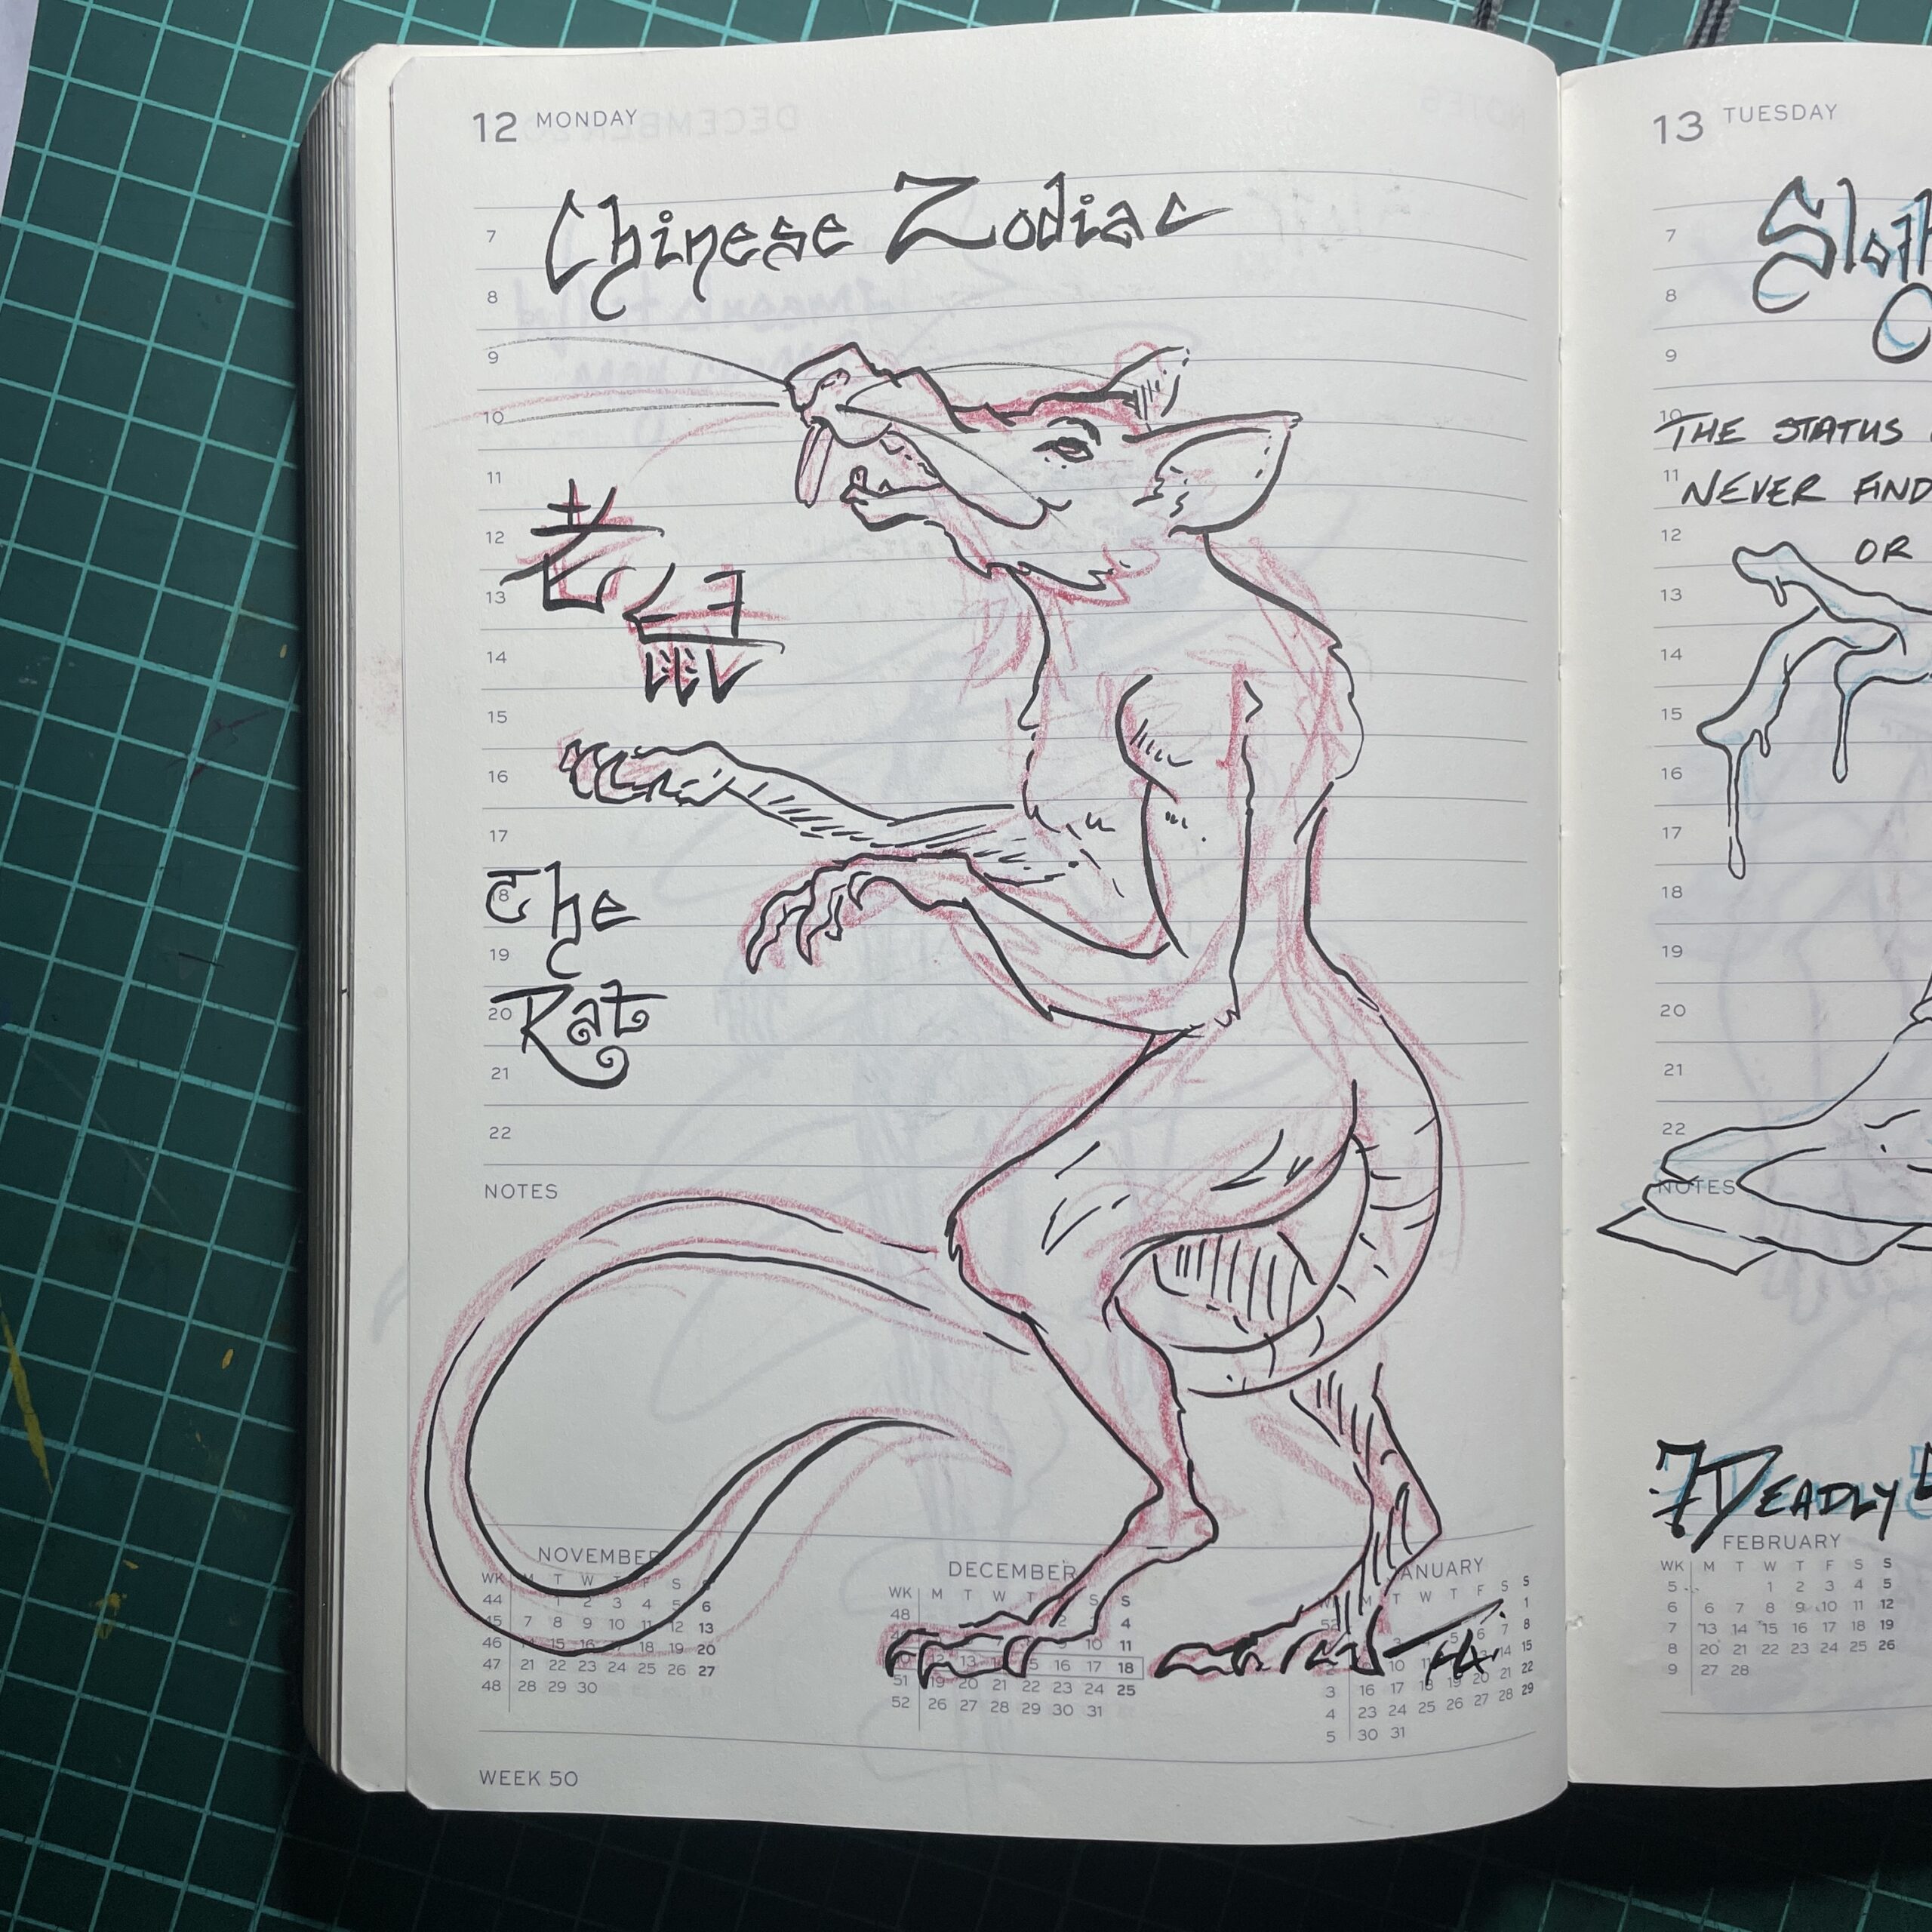 12 MONDAY
Chinese Zodiac
7
8
9
10
11
12
老鼠
13
14
15
16
17
The
18
19
Rat
20
21
22
NOTES
NOVEMBER
WK M T W T F S S
44 1 2 3 4 5 6
45 7 8 9 10 11 12 13
46 14 15 16 17 18 19 20
47 21 22 23 24 25 26 27
48 28 29 30
DECEMBER
WK M T W T S S
48 2 4
10 11
12 13 14 15 16 17 18
51 19 20 21 22 23 24 25
52 26 27 28 29 30 31
ANUARY
M T W T F S S
1
5 6 7 8
10 11 14 15
3 16 17 18 19 20 21 22
4 23 24 25 26 27 28 29
5 30 31
WEEK 50
13 TUESDAY
7
8
9
10
THE STATUS
11
NEVER FIND
12
OR
13
14
15
16
17
18
19
20
21
22
NOTES
7 DEADLY
FEBRUARY
WK M T W T F S S
5 1 2 3 4 5
6 6 7 8 9 10 11 12
7 13 14 15 16 17 18 19
8 20 21 22 23 24 25 26
9 27 28